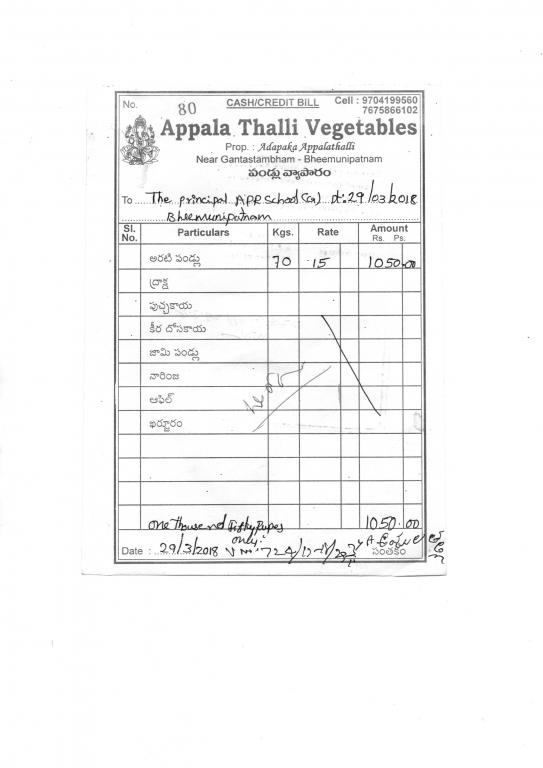 No. 80 CASH/CREDIT BILL Cell : 9704199560
7675866102
Appala Thalli Vegetables
Prop. : Adapaka Appalathalli
Near Gantastambham - Bheemunipatnam
పండ్లు వ్యాపారం
To The principal APR School (G) Dt: 29/03/2018
Bheemunipatnam
Sl. No. Particulars Kgs. Rate Amount Rs. Ps.
అరటి పండ్లు 70 15 1050.00
ద్రాక్ష
పుచ్చకాయ
కీర దోసకాయ
జామి పండ్లు
నారింజ
ఆఫిల్
ఖర్జూరం
one Thousend Fifty Rupes 1050.00
only.
Date : 29/3/2018 సంతకం